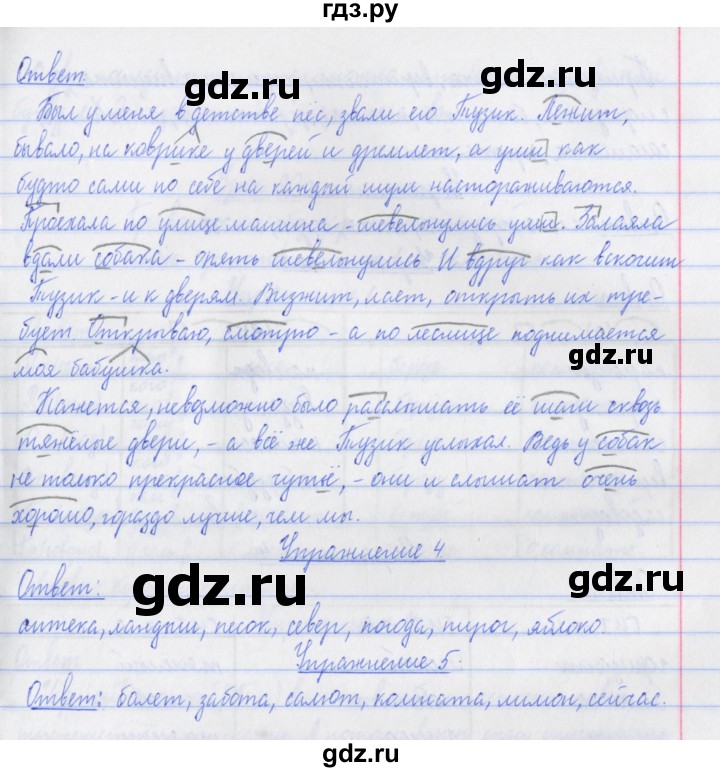 гдз.ру
Ответ:
gdz.ru
gdz.ru
Был у меня в детстве пёс, звали его Тузик. Лежит,
бывало, на коврике у дверей и дремлет, а уши как
будто сами по себе на каждый шум настораживаются.
Проехала по улице машина - шевельнулись уши. Залаяла
вдали собака - опять шевельнулись. И вдруг как вскочит
Тузик - и к дверям. Визжит, лает, открыть их тре-
бует. Открываю, смотрю - а по лестнице поднимается
gdz.ru
моя бабушка.
Кажется, невозможно было расслышать её шаги сквозь
тяжёлые двери, - а всё же Тузик услыхал. Ведь у собак
не только прекрасное чутьё, - они и слышат очень
хорошо, гораздо лучше, чем мы.
Упражнение 4
Ответ:
gdz.ru
gdz.ru
аптека, ландыш, песок, север, погода, пирог, яблоко.
Упражнение 5.
Ответ: балет, забота, салют, комната, лимон, сейчас.
gdz.ru